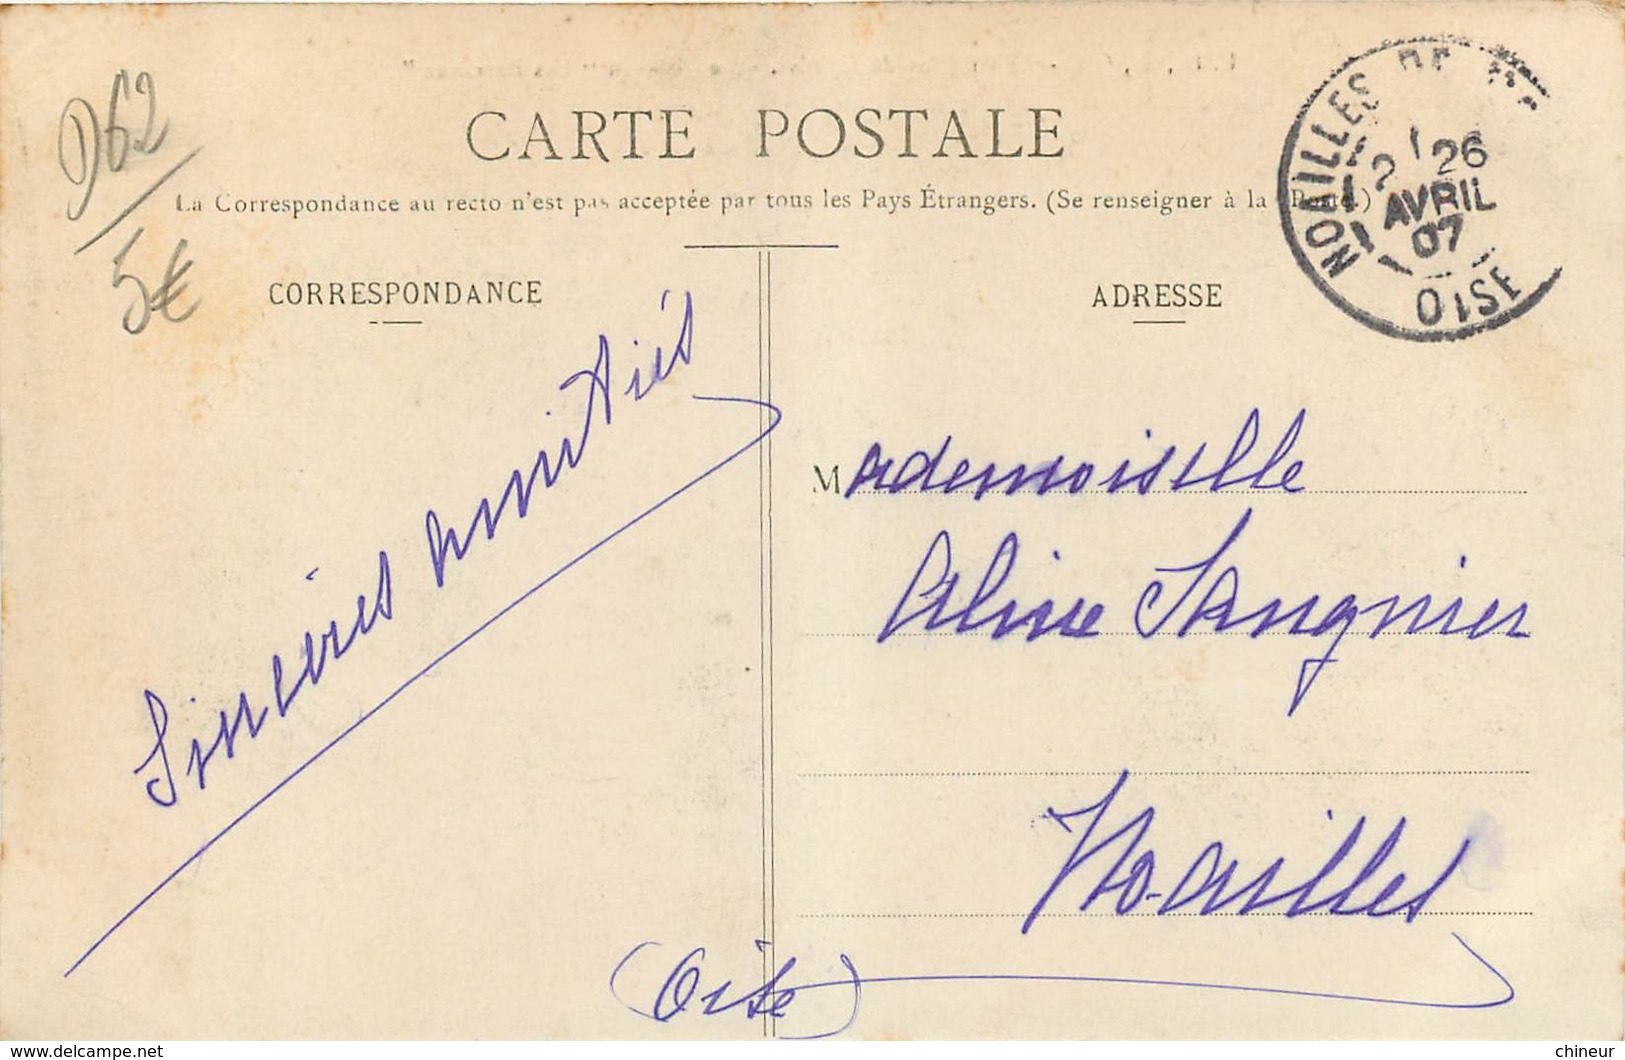 D62
5€
CARTE POSTALE
La Correspondance au recto n'est pas acceptée par tous les Pays Étrangers. (Se renseigner à la Poste.)
NOAILLES DE
26
AVRIL
07
OISE
CORRESPONDANCE
Sincères amitiés
ADRESSE
Mademoiselle
Aline Sangnier
Noailles
(Oise)
www.delcampe.net
chineur